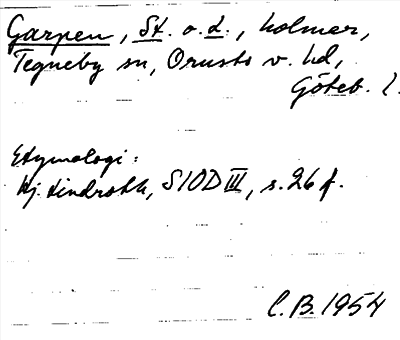 Garpen, St. o. L., holmar,
Tegneby sn, Orusts v. hd,
Göteb. l.
Etymologi:
Hj. Lindroth, SIOD III, s. 26 f.
C.B. 1954